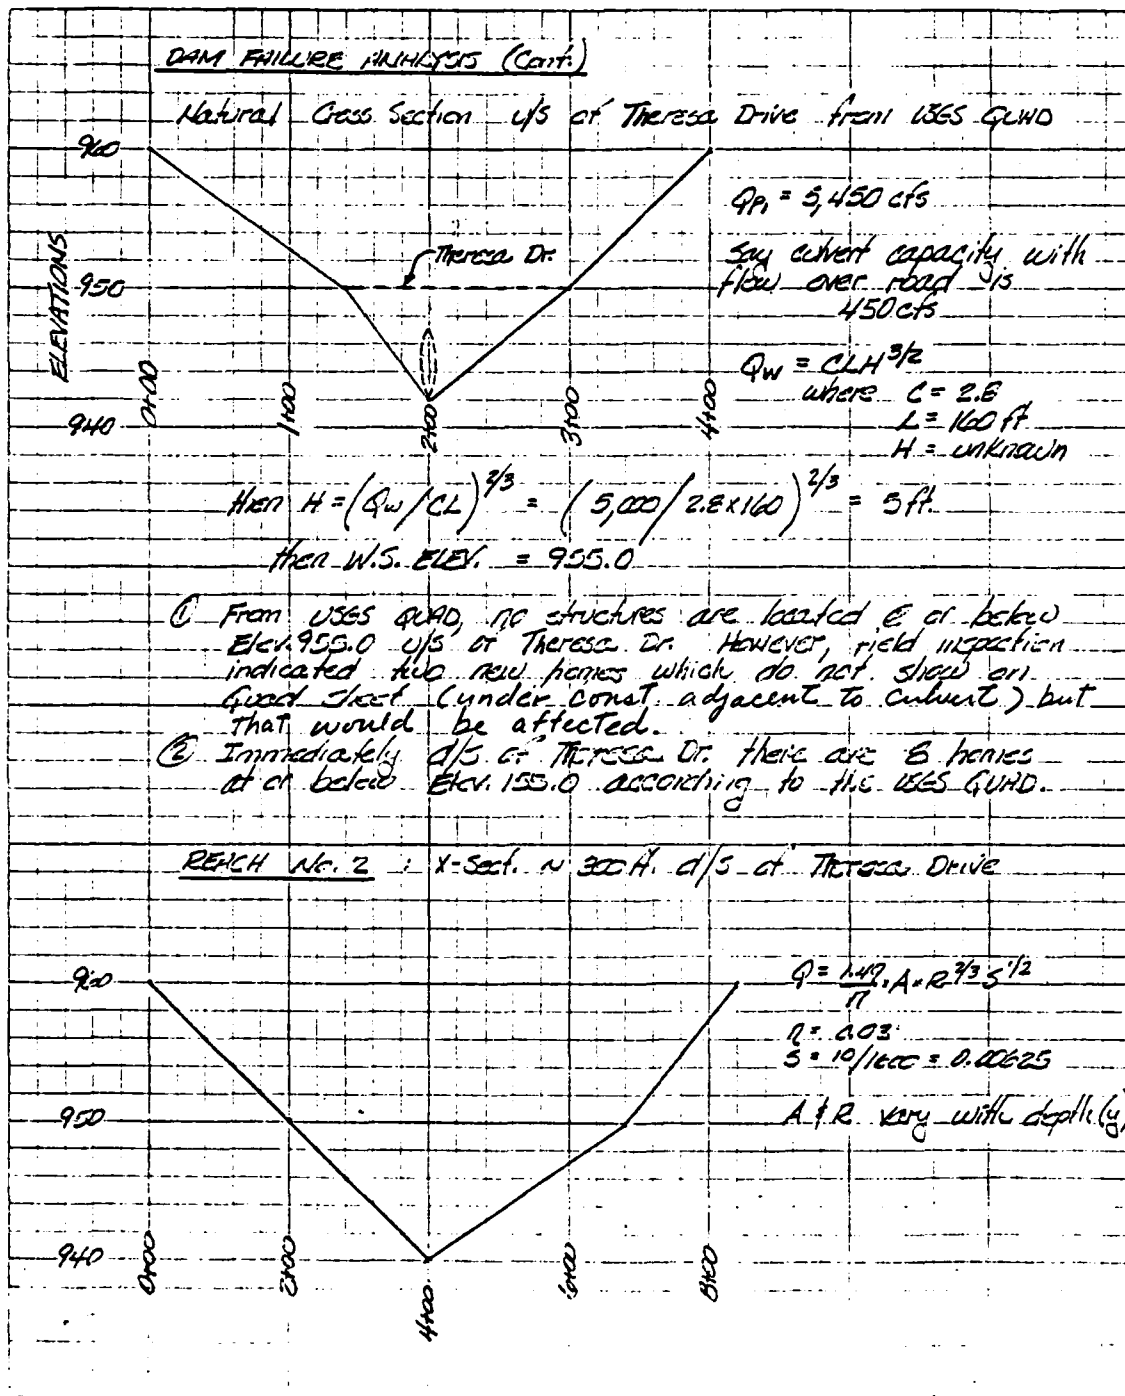 DAM FAILURE ANALYSIS (Cont.)
Natural Cross Section u/s of Theresa Drive from USGS QUAD
960
Qp1 = 5,450 cfs
ELEVATIONS
Theresa Dr.
say culvert capacity with
flow over road is
450 cfs
950
Qw = CLH^3/2
where C = 2.8
L = 160 ft
H = unknown
940
0+00
1+00
2+00
3+00
4+00
then H = (Qw/CL)^2/3 = (5,000/2.8x160)^2/3 = 5 ft.
then W.S. ELEV. = 955.0
① From USGS QUAD, no structures are located @ or below
Elev. 955.0 u/s of Theresa Dr. However, field inspection
indicated two new homes which do not show on
Quad Sheet (under const. adjacent to culvert) but
that would be affected.
② Immediately d/s of Theresa Dr. there are 8 homes
at or below Elev. 155.0 according to the USGS QUAD.
REACH No. 2 : X-Sect. ~ 300 ft. d/s of Theresa Drive
960
Q = 1.49/n × A × R^2/3 S^1/2
n = 0.03
S = 10/1600 = 0.00625
950
A & R vary with depth (y)
940
0+00
2+00
4+00
6+00
8+00